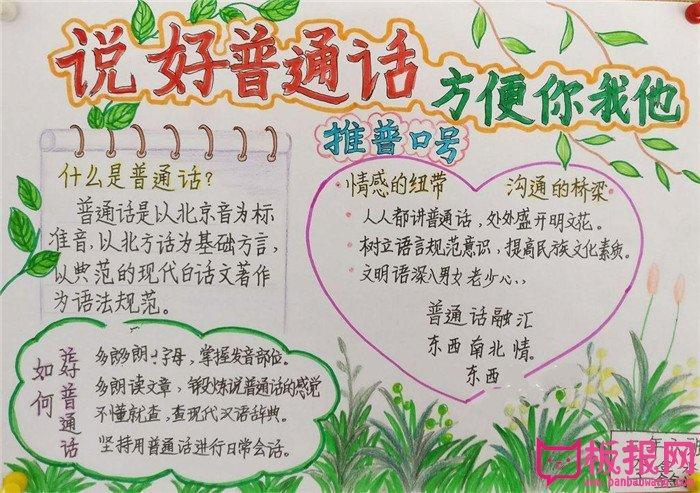 说好普通话
方便你我他
推普口号
什么是普通话?
普通话是以北京音为标
准音,以北方话为基础方言,
以典范的现代白话文著作
为语法规范。
·情感的纽带 沟通的桥梁
·人人都讲普通话,处处盛开明文花。
·树立语言规范意识,提高民族文化素质。
·文明语深入男女老少心、
普通话融汇
东西南北情。
东西
如何
好普通话
多朗字母,掌握发音部位。
多朗读文章,锻炼说普通话的感觉
不懂就查,查现代汉语辞典。
坚持用普通话进行日常会话。
年
板报网
www.banbaowang.com